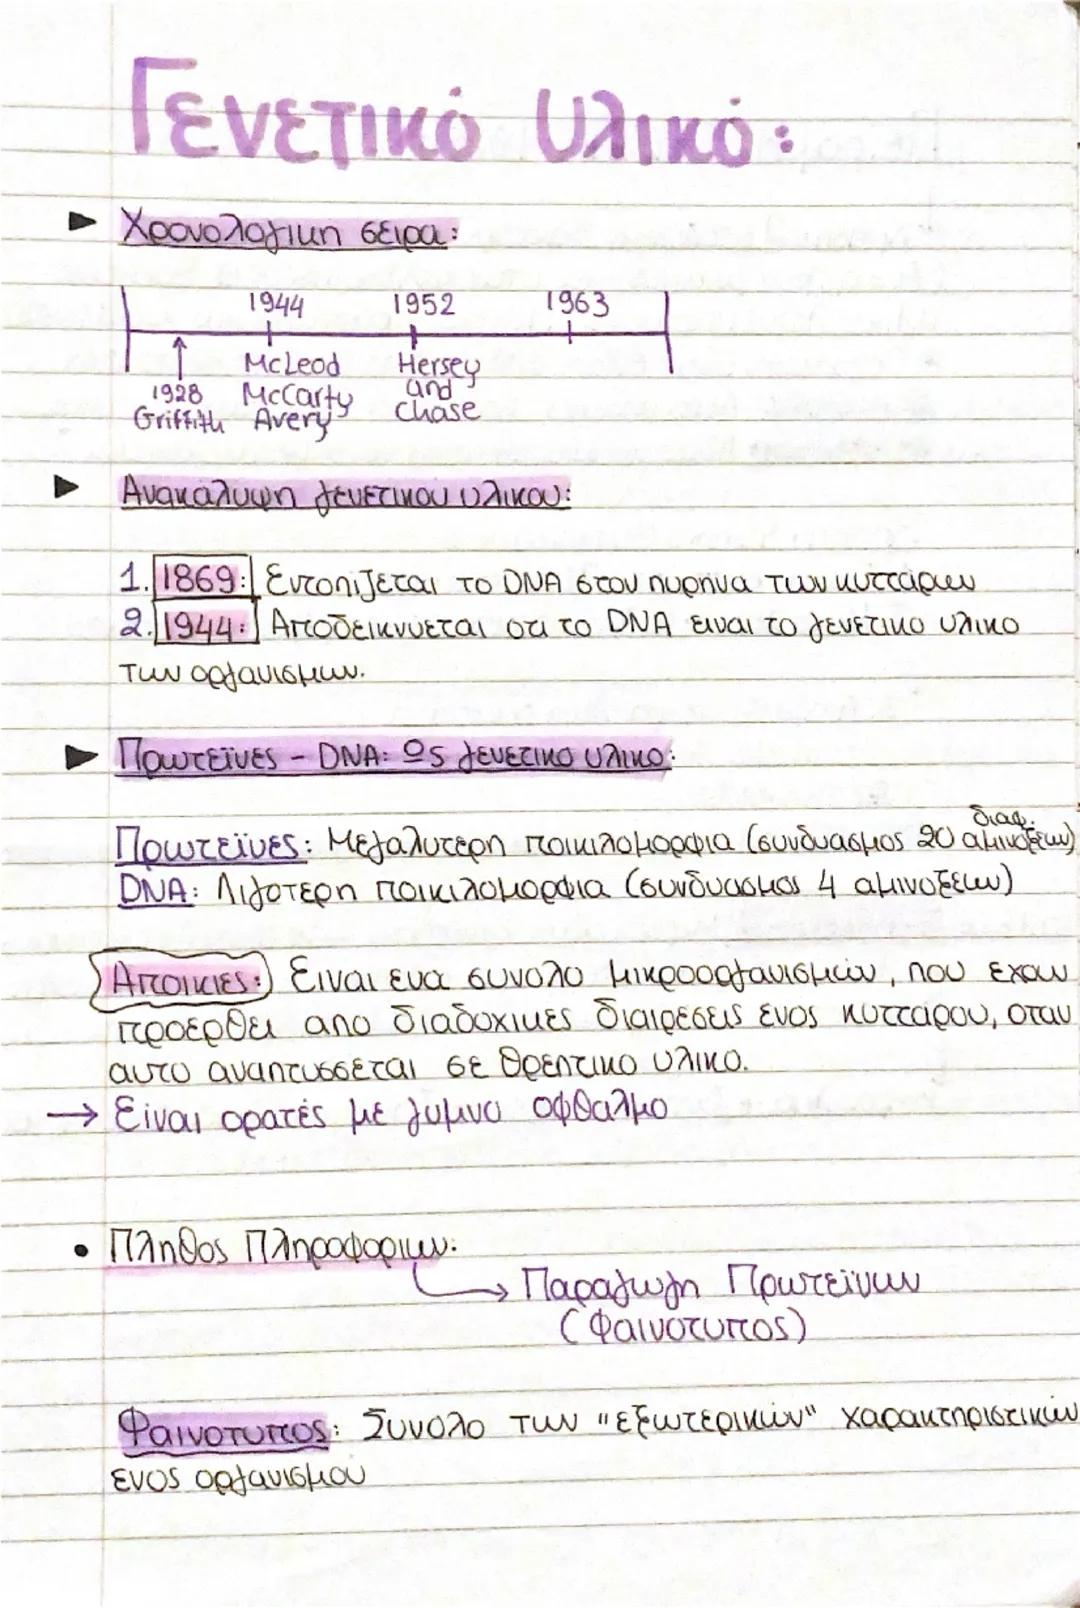 Γενετικό Υλικό:
Χρονολογικη σειρα:
1944 1952 1963
McLeod Hersey
1928 McCarty and
Griffith Avery chase
Ανακαλυψη γενετικου υλικου:
1. 1869: Εντοπιζεται το DNA στον πυρηνα των κυτταρων
2. 1944: Αποδεικνυεται οτι το DNA ειναι το γενετικο υλικο
των οργανισμων.
Πρωτεϊνες - DNA: Ως γενετικο υλικο:
διαφ.
Πρωτεϊνες: Μεγαλυτερη ποικιλομορφια (συνδυασμος 20 αμινοξεων)
DNA: Λιγοτερη ποικιλομορφια (συνδυασμος 4 αμινοξεων)
Αποικιες: Ειναι ενα συνολο μικροοργανισμων, που εχουν
προερθει απο διαδοχικες διαιρεσεις ενος κυτταρου, οταν
αυτο αναπτυσσεται σε θρεπτικο υλικο.
→ Είναι ορατές με γυμνο οφθαλμο
• Πληθος Πληροφοριων:
→ Παραγωγη Πρωτεϊνων
(Φαινοτυπος)
Φαινοτυπος: Συνολο των "εξωτερικων" χαρακτηριστικων
ενος οργανισμου